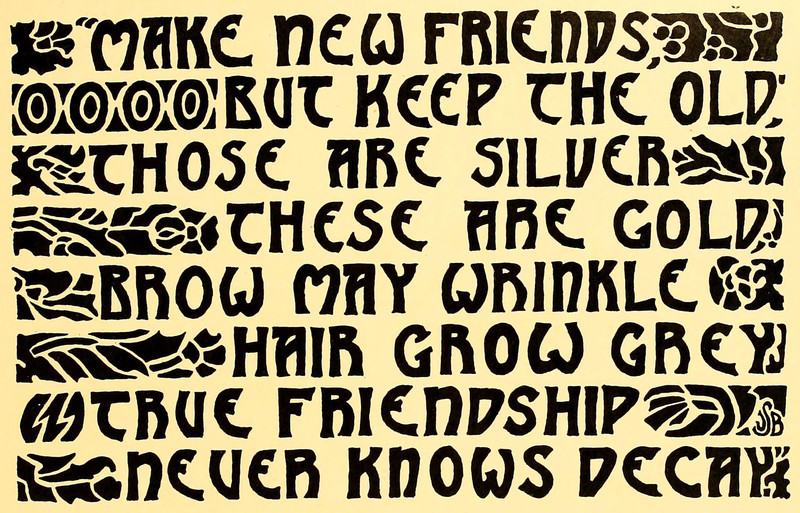 "MAKE NEW FRIENDS,
BUT KEEP THE OLD,
THOSE ARE SILVER
THESE ARE GOLD,
BROW MAY WRINKLE
HAIR GROW GREY
TRUE FRIENDSHIP
JSB
NEVER KNOWS DECAY"